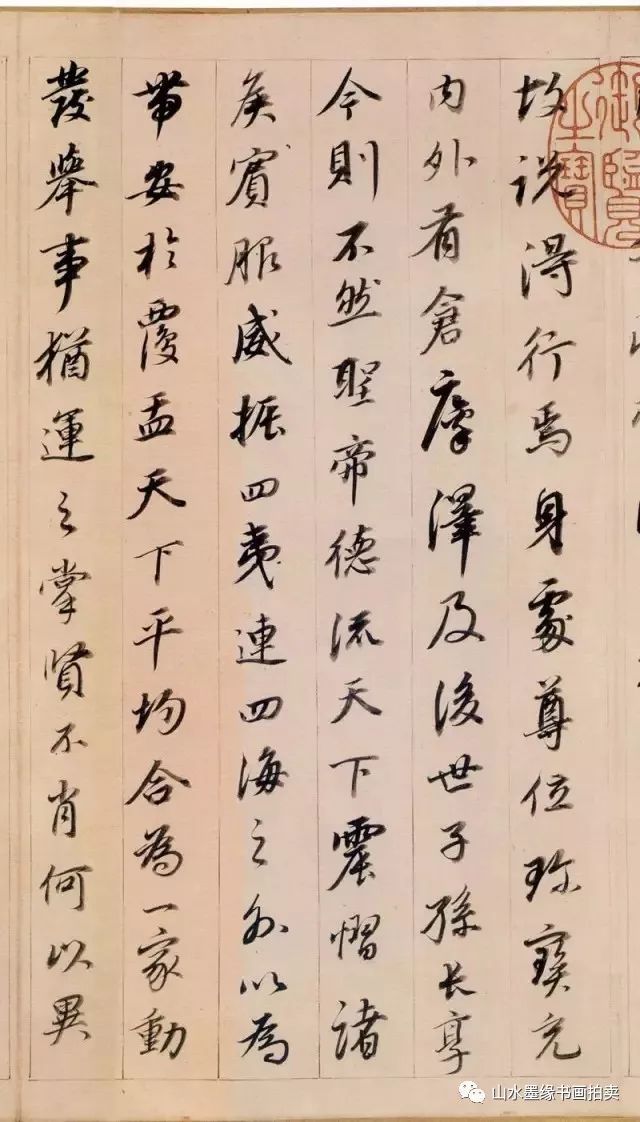 故說得行焉身處尊位珍寶充
内外有倉廩澤及後世子孫長享
今則不然聖帝德流天下震慴諸
侯賓服威振四夷連四海之外以為
帶安於覆盂天下平均合為一家動
發舉事猶運之掌賢不肖何以異
御覽之寶
山水墨缘书画拍卖